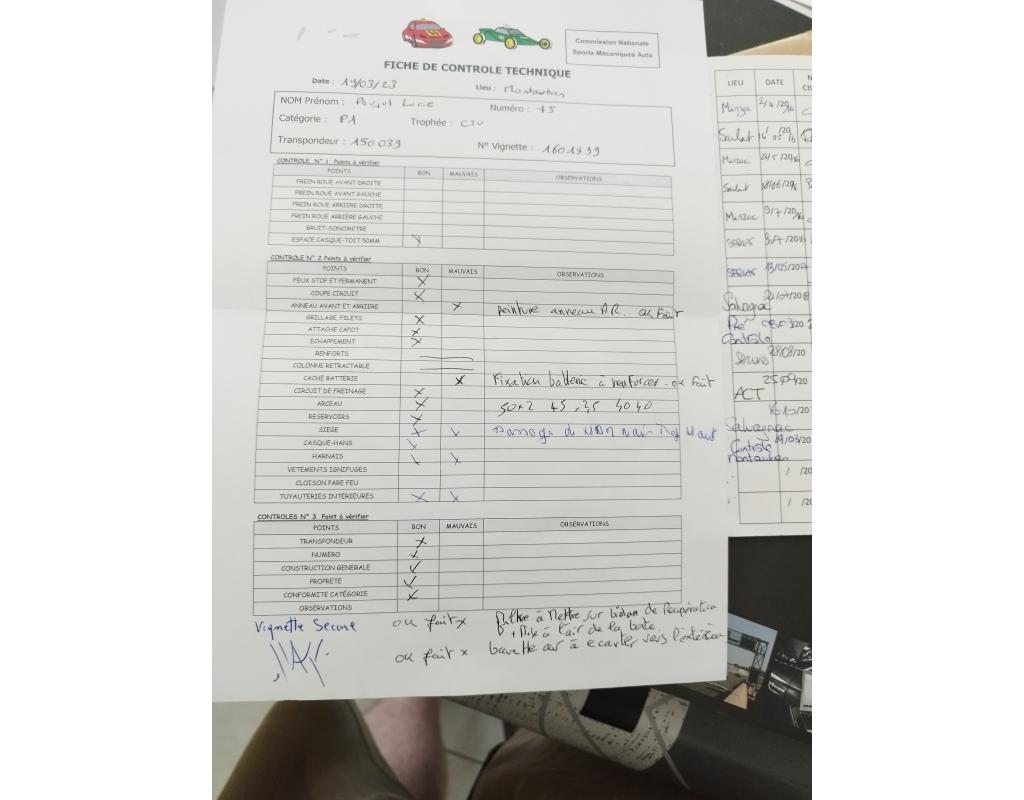 Commission Nationale
Sports Mécaniques Auto
FICHE DE CONTROLE TECHNIQUE
Date : 19/03/23 Lieu : Montauban
NOM Prénom : Poujol Lucie Numéro : 15
Catégorie : P1 Trophée : CSU
Transpondeur : 150 039 N° Vignette : 1601999
CONTROLE N° 1 Points à vérifier
POINTS BON MAUVAIS OBSERVATIONS
FREIN ROUE AVANT DROITE
FREIN ROUE AVANT GAUCHE
FREIN ROUE ARRIERE DROITE
FREIN ROUE ARRIERE GAUCHE
BRUIT-SONOMETRE
ESPACE CASQUE-TOIT 50MM
CONTROLE N° 2 Points à vérifier
POINTS BON MAUVAIS OBSERVATIONS
FEUX STOP ET PERMANENT X
COUPE CIRCUIT X
ANNEAU AVANT ET ARRIERE X Peinture anneau AR. OK Fait
GRILLAGE, FILETS X
ATTACHE CAPOT X
ECHAPPEMENT X
RENFORTS
COLONNE RETRACTABLE
CACHE BATTERIE X Fixation batterie à renforcer. ok fait
CIRCUIT DE FREINAGE X
ARCEAU X 50x2 45 40 40
RESERVOIRS X
SIEGE X Passage de
CASQUE-HANS X
HARNAIS X X
VETEMENTS IGNIFUGES
CLOISON PARE FEU
TUYAUTERIES INTERIEURES X X
CONTROLES N° 3 Point à vérifier
POINTS BON MAUVAIS OBSERVATIONS
TRANSPONDEUR X
NUMERO X
CONSTRUCTION GENERALE
PROPRETE
CONFORMITE CATÉGORIE X
OBSERVATIONS
Vignette ok fait x à Mettre sur bidon de Recupération
+ Mise à l'air de la boite
ok fait x bavette à ecarter vers l'extérieur
LIEU DATE
Minzac
Soulat
Minzac
Soulat
Minzac 9/7/
Salvagnac
Pré
Controle
ACT
Salvagnac
Controle 19/03/20
Montauban
/ /20
/ /20